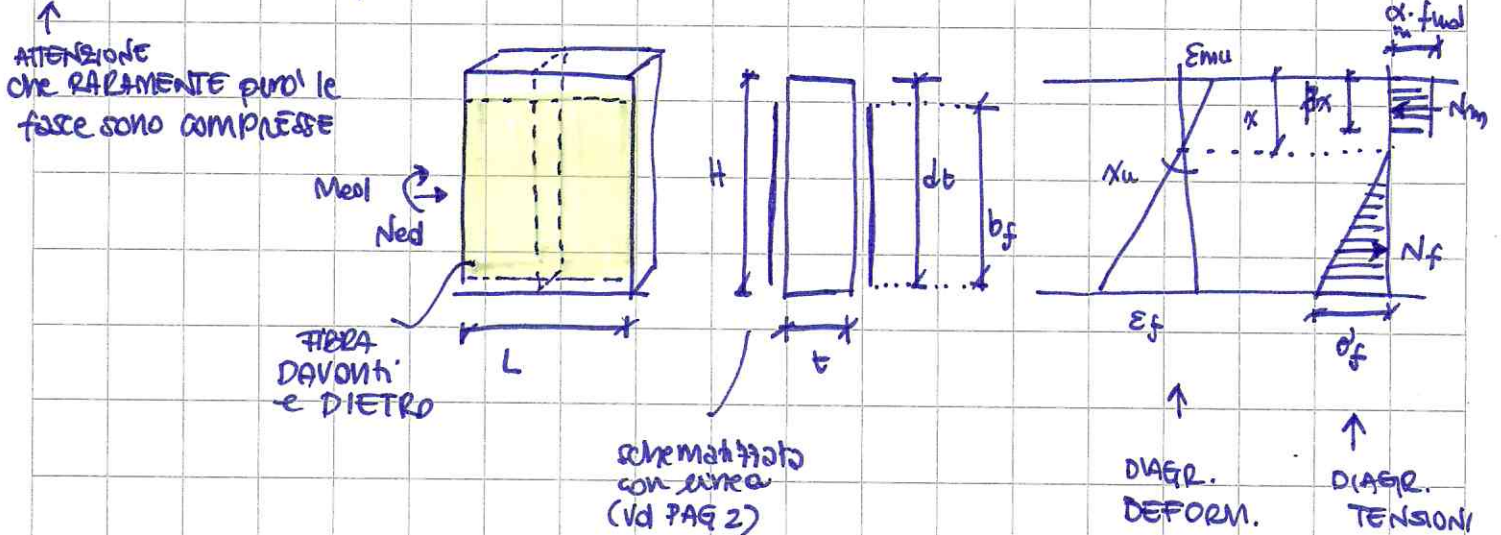 ATTENZIONE
che RARAMENTE però le
fasce sono COMPRESSE
Med
Ned
FIBRA
DAVANTI
e DIETRO
L
H
t
dt
bf
schematizzata
con linea
(Vd PAG 2)
εmu
x
βx
χu
εf
α·fmd
m
Nm
Nf
σf
DIAGR.
DEFORM.
DIAGR.
TENSIONI